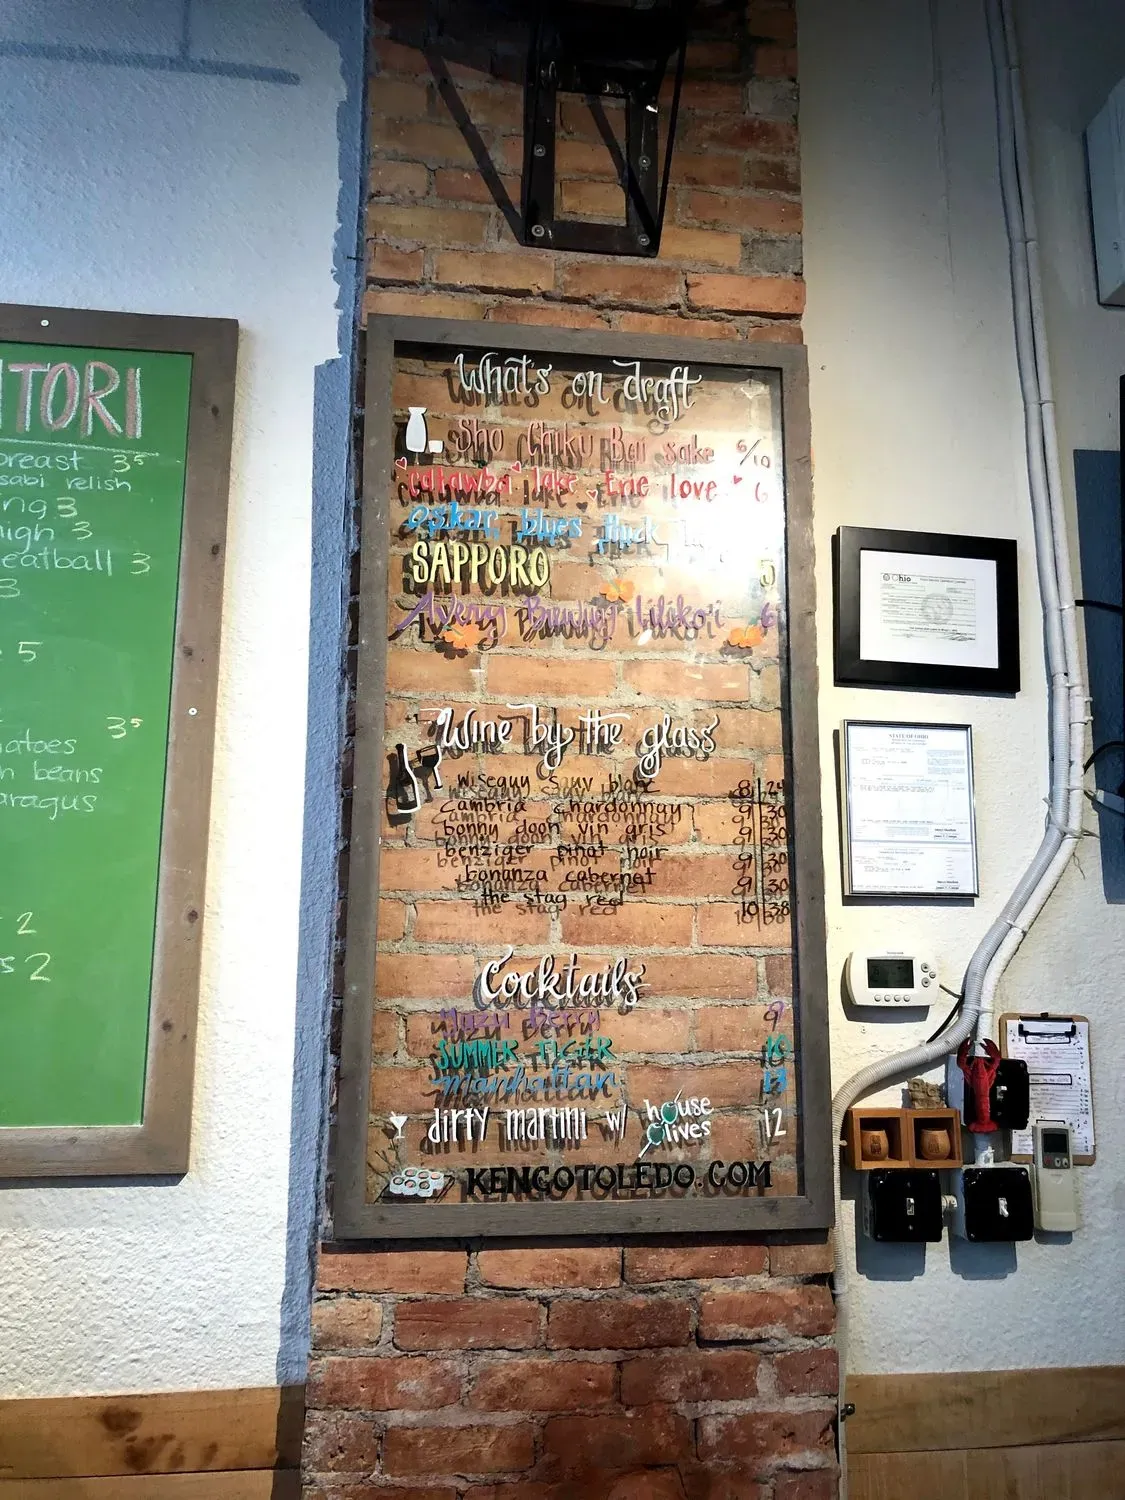 TORI
breast 3⁵
sabi relish
ng 3
high 3
eatball 3
3
5
3⁵
matoes
n beans
aragus
2
s 2
What's on draft
Sho Chiku Bai sake 6/10
catawba lake Erie love 6
oskar blues
SAPPORO 5
Avery Brewing Lilikoi 6
Wine by the glass
wiseguy sauv blanc 8 | 24
cambria chardonnay 9 | 30
bonny doon vin gris 9 | 30
benziger pinot noir 9 | 30
bonanza cabernet 9 | 30
the stag red 10 | 38
Cocktails
Yuzu Berry 9
SUMMER TIGER 10
manhattan
dirty martini w/ house olives 12
KENGOTOLEDO.COM
Ohio
STATE OF OHIO